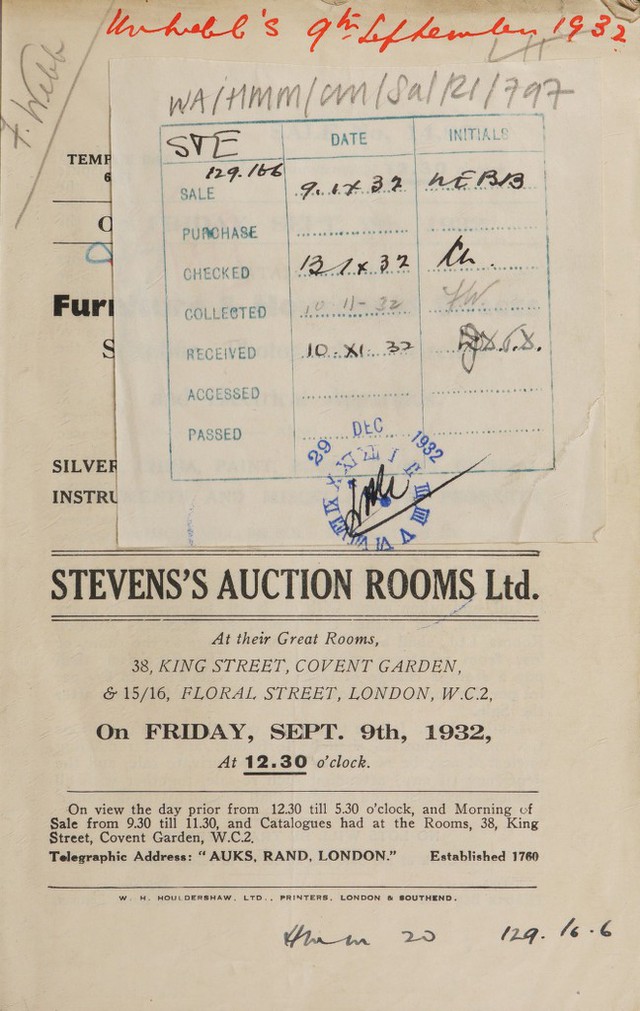 Mr Webb's 9th September 1932
F. Webb
WA/HMM/CM/Sal/21/797
STE
DATE
INITIALS
129.16.6
SALE 9.IX 32 WEBB
PURCHASE
CHECKED 13 IX 32
COLLECTED 10-11-32 FW.
RECEIVED 10.XI.32
ACCESSED
PASSED
29 DEC 1932
TEMP
6
O
Furn
S
SILVER
INSTRU
STEVENS'S AUCTION ROOMS Ltd.
At their Great Rooms,
38, KING STREET, COVENT GARDEN,
& 15/16, FLORAL STREET, LONDON, W.C.2,
On FRIDAY, SEPT. 9th, 1932,
At 12.30 o'clock.
On view the day prior from 12.30 till 5.30 o'clock, and Morning of
Sale from 9.30 till 11.30, and Catalogues had at the Rooms, 38, King
Street, Covent Garden, W.C.2.
Telegraphic Address: "AUKS, RAND, LONDON." Established 1760
W. H. HOULDERSHAW, LTD., PRINTERS, LONDON & SOUTHEND.
Hmm 20 129.16.6